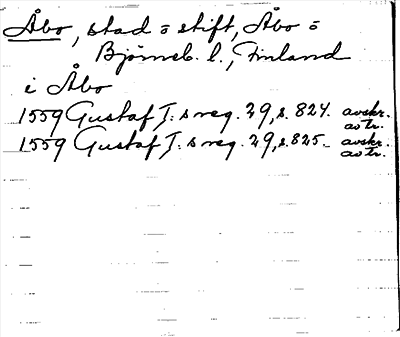 Åbo, stad o stift, Åbo o
Björneb. l., Finland
i Åbo
1559 Gustaf I:s reg. 29, s. 824. avskr.
av tr.
1559 Gustaf I:s reg. 29, s. 825. avskr.
av tr.